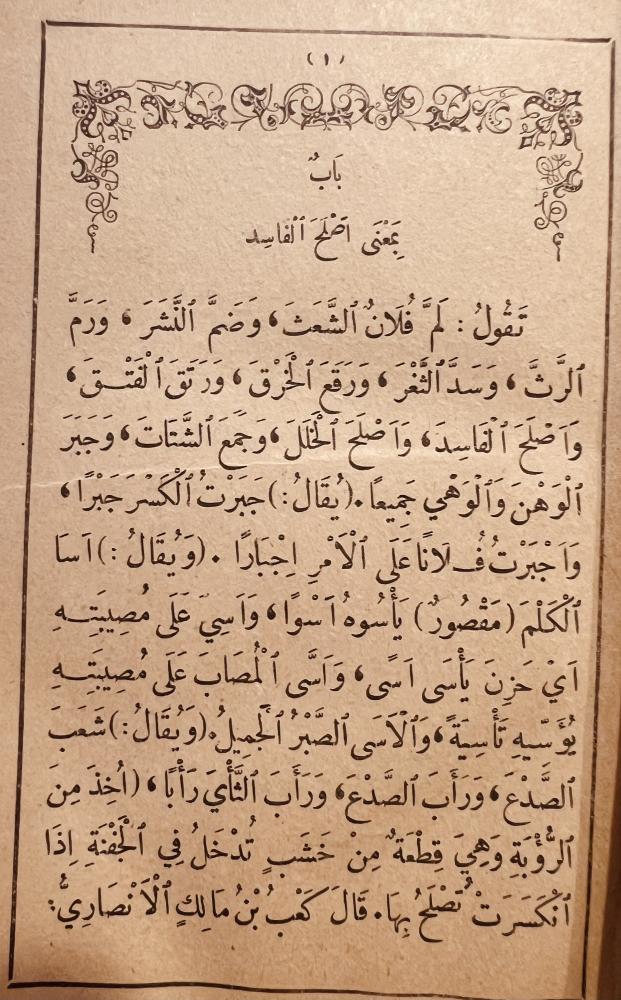 (١)
بَابٌ
بِمَعْنَى اَصْلَحَ ٱلْفَاسِد
تَقُولُ : لَمَّ فُلَانٌ ٱلشَّعَثَ ، وَضَمَّ ٱلنَّشَرَ ، وَرَمَّ
ٱلرَّثَّ ، وَسَدَّ ٱلثَّغْرَ ، وَرَقَعَ ٱلْخَرْقَ ، وَرَتَقَ ٱلْفَتْقَ ،
وَاَصْلَحَ ٱلْفَاسِدَ ، وَاَصْلَحَ ٱلْخَلَلَ ، وَجَمَعَ ٱلشَّتَاتَ ، وَجَبَرَ
ٱلْوَهْنَ وَٱلْوَهْيَ جَمِيعًا . (يُقَالُ :) جَبَرْتُ ٱلْكَسْرَ جَبْرًا ،
وَاَجْبَرْتُ فُلَانًا عَلَى ٱلْاَمْرِ اِجْبَارًا . (وَيُقَالُ :) اَسَا
ٱلْكَلْمَ (مَقْصُورٌ) يَأْسُوهُ اَسْوًا ، وَاَسِيَ عَلَى مُصِيبَتِهِ
اَيْ حَزِنَ يَأْسَى اَسًى ، وَاَسَّى ٱلْمُصَابَ عَلَى مُصِيبَتِهِ
يُؤَسِّيهِ تَأْسِيَةً ، وَٱلْاَسَى ٱلصَّبْرُ ٱلْجَمِيلُ . (وَيُقَالُ :) شَعَبَ
ٱلصَّدْعَ ، وَرَأَبَ ٱلصَّدْعَ ، وَرَأَبَ ٱلثَّأْيَ رَأْبًا ، (اُخِذَ مِنَ
ٱلرُّؤْبَةِ وَهِيَ قِطْعَةٌ مِنْ خَشَبٍ تُدْخَلُ فِي ٱلْجَفْنَةِ اِذَا
ٱنْكَسَرَتْ تُصْلَحُ بِهَا . قَالَ كَعْبُ بْنُ مَالِكٍ ٱلْاَنْصَارِيُّ :